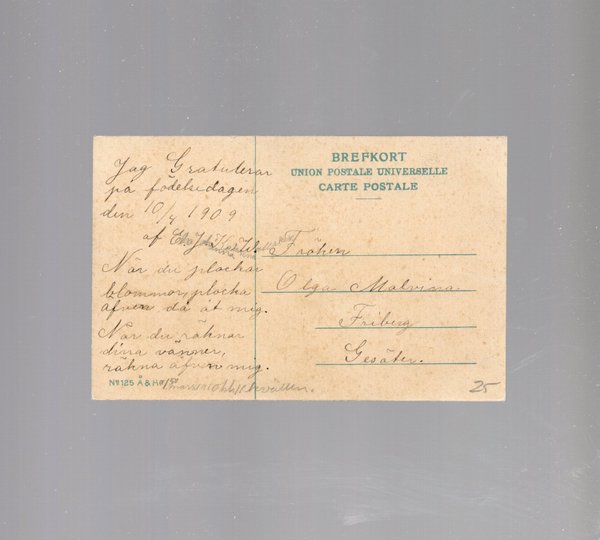 BREFKORT
UNION POSTALE UNIVERSELLE
CARTE POSTALE
Jag Gratulerar
på födelsedagen
den 10/4 1909
af
När du plockar
blommor, plocka
äfven då åt mig.
När du räknar
dina vänner,
räkna äfven mig.
Fröken
Olga Malvina
Friberg
Gesäter.
No 125 Å & H
25